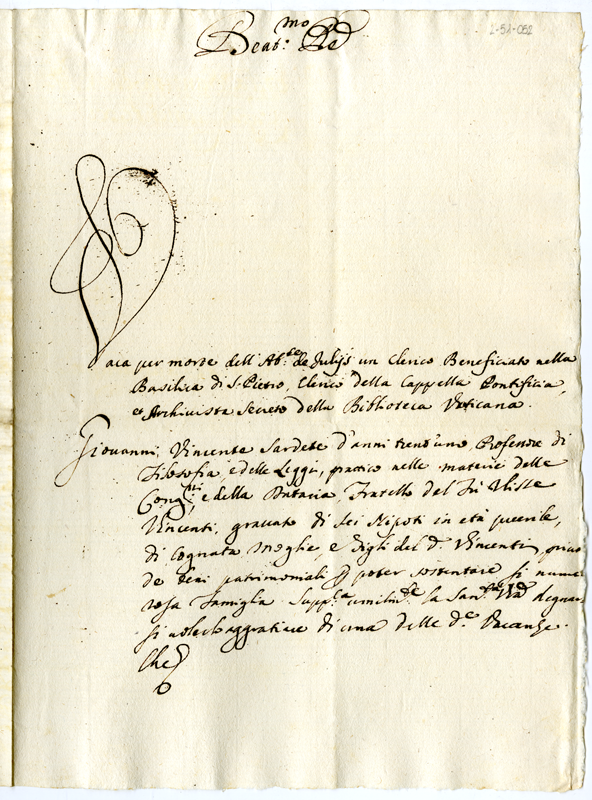 2-51-052
Beat.mo Pre
Vaca per morte dell'Ab.te de Julijs un Clerico Beneficiato nella
Basilica di S. Pietro, Clerico della Cappella Pontificia,
et Archivista Secreto della Biblioteca Vaticana.
Giovanni, Vincente Sardete d'anni trent'uno, Professore di
Filosofia, e delle Leggi, prattico nelle materie delle
Cong.ni, e della Dataria, Fratello del fù Ulisse
Vincenti, gravato di sei Nipoti in età puerile,
di Cognata Moglie, e figli del d.o Vincenti, privo
de beni patrimoniali p poter sostentare sì nume
rosa famiglia supp.ca umilm.te la San.tà Vra degnar
si aggratiare di una delle d.e Vacanze.
Che